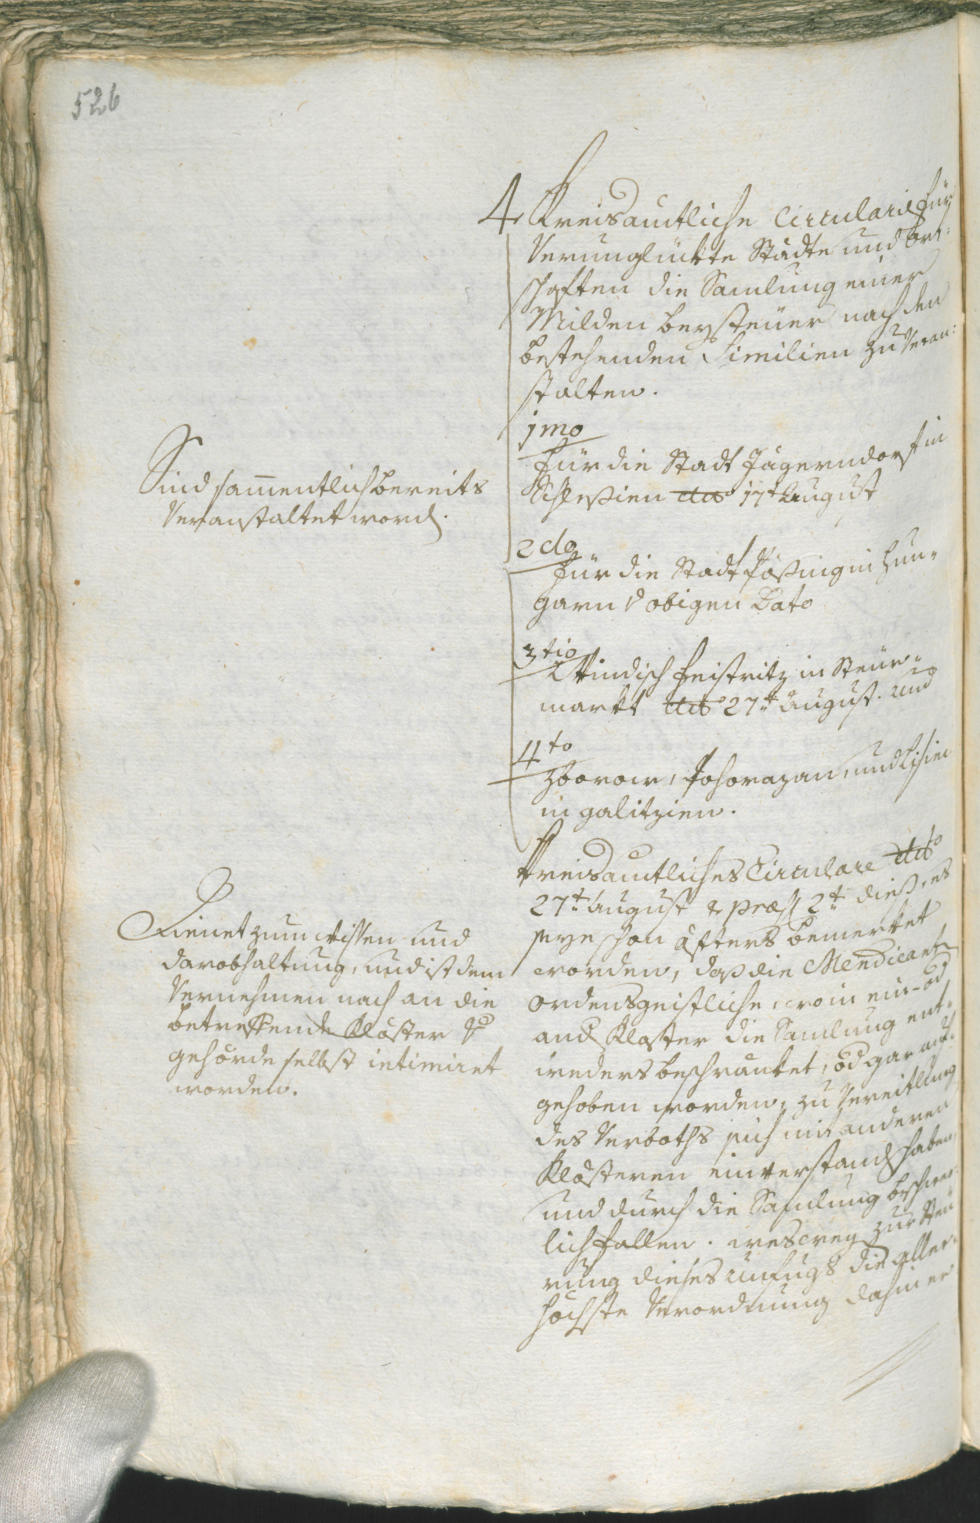 526
4 Kreisamtliche Circularie für
Verunglückte Städte und Ort-
schaften die Samlung einer
Milden beysteuer nach den
bestehenden Similien zu Veran:
stalten.
1mo
für die Stadt Jägerndorf in
Schlesien dto 17t August
2do
für die Stadt Pößing in Hun-
garn d obigen Dato
3tio
Windisch feistritz in Steür-
markt dto 27t August. und
4to
Zborow, und
in galitzien.
Sind sam̄entlich bereits
Veranstaltet word.
Kreisamtliches Circulare dto
27t August & præs 2t dieß, es
seye schon öfters bemerket
worden, daß die Mendicant
ordensgeistliche, wo in ein- od
and Kloster die Samlung ent-
weders beschränket, od gar auf-
gehoben worden, zu Vereitlung
des Verboths sich mit anderen
Klösteren einverstand haben,
und durch die Samlung beschwer-
lich fallen. wesweg zur Steu
rung dieses Unfugs die aller-
höchste Verordnung dahin er
Dienet zum Wissen und
darobhaltung, und ist dem
Vernehmen nach an die
betreffende Klöster
gehörde selbst intimiret
worden.